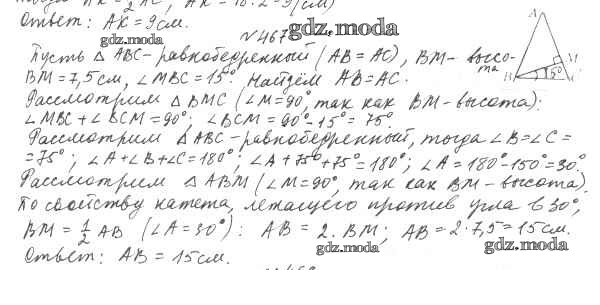 Ответ: AK = 9 см.
gdz.moda
gdz.moda
№467
Пусть △ ABC - равнобедренный (AB = AC), BM - высо-
та
BM = 7,5 см, ∠MBC = 15°. Найдём AB = AC.
Рассмотрим △ BMC (∠M = 90°, так как BM - высота):
∠MBC + ∠BCM = 90°; ∠BCM = 90° - 15° = 75°.
Рассмотрим △ ABC - равнобедренный, тогда ∠B = ∠C =
= 75°; ∠A + ∠B + ∠C = 180°; ∠A + 75° + 75° = 180°; ∠A = 180° - 150° = 30°
Рассмотрим △ ABM (∠M = 90°, так как BM - высота).
По свойству катета, лежащего против угла в 30°,
BM = 1/2 AB (∠A = 30°): AB = 2 · BM; AB = 2 · 7,5 = 15 см.
gdz.moda
gdz.moda
Ответ: AB = 15 см.
A
M
B
15°
C